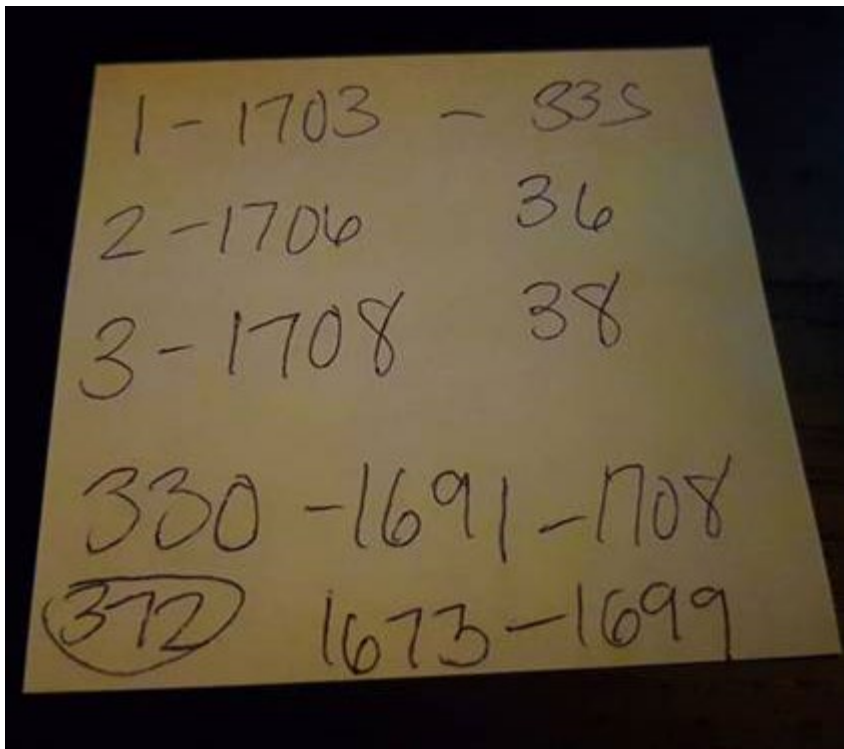 1 - 1703 - 335
2 - 1706 36
3 - 1708 38
330 - 1691 - 1708
372 1673 - 1699